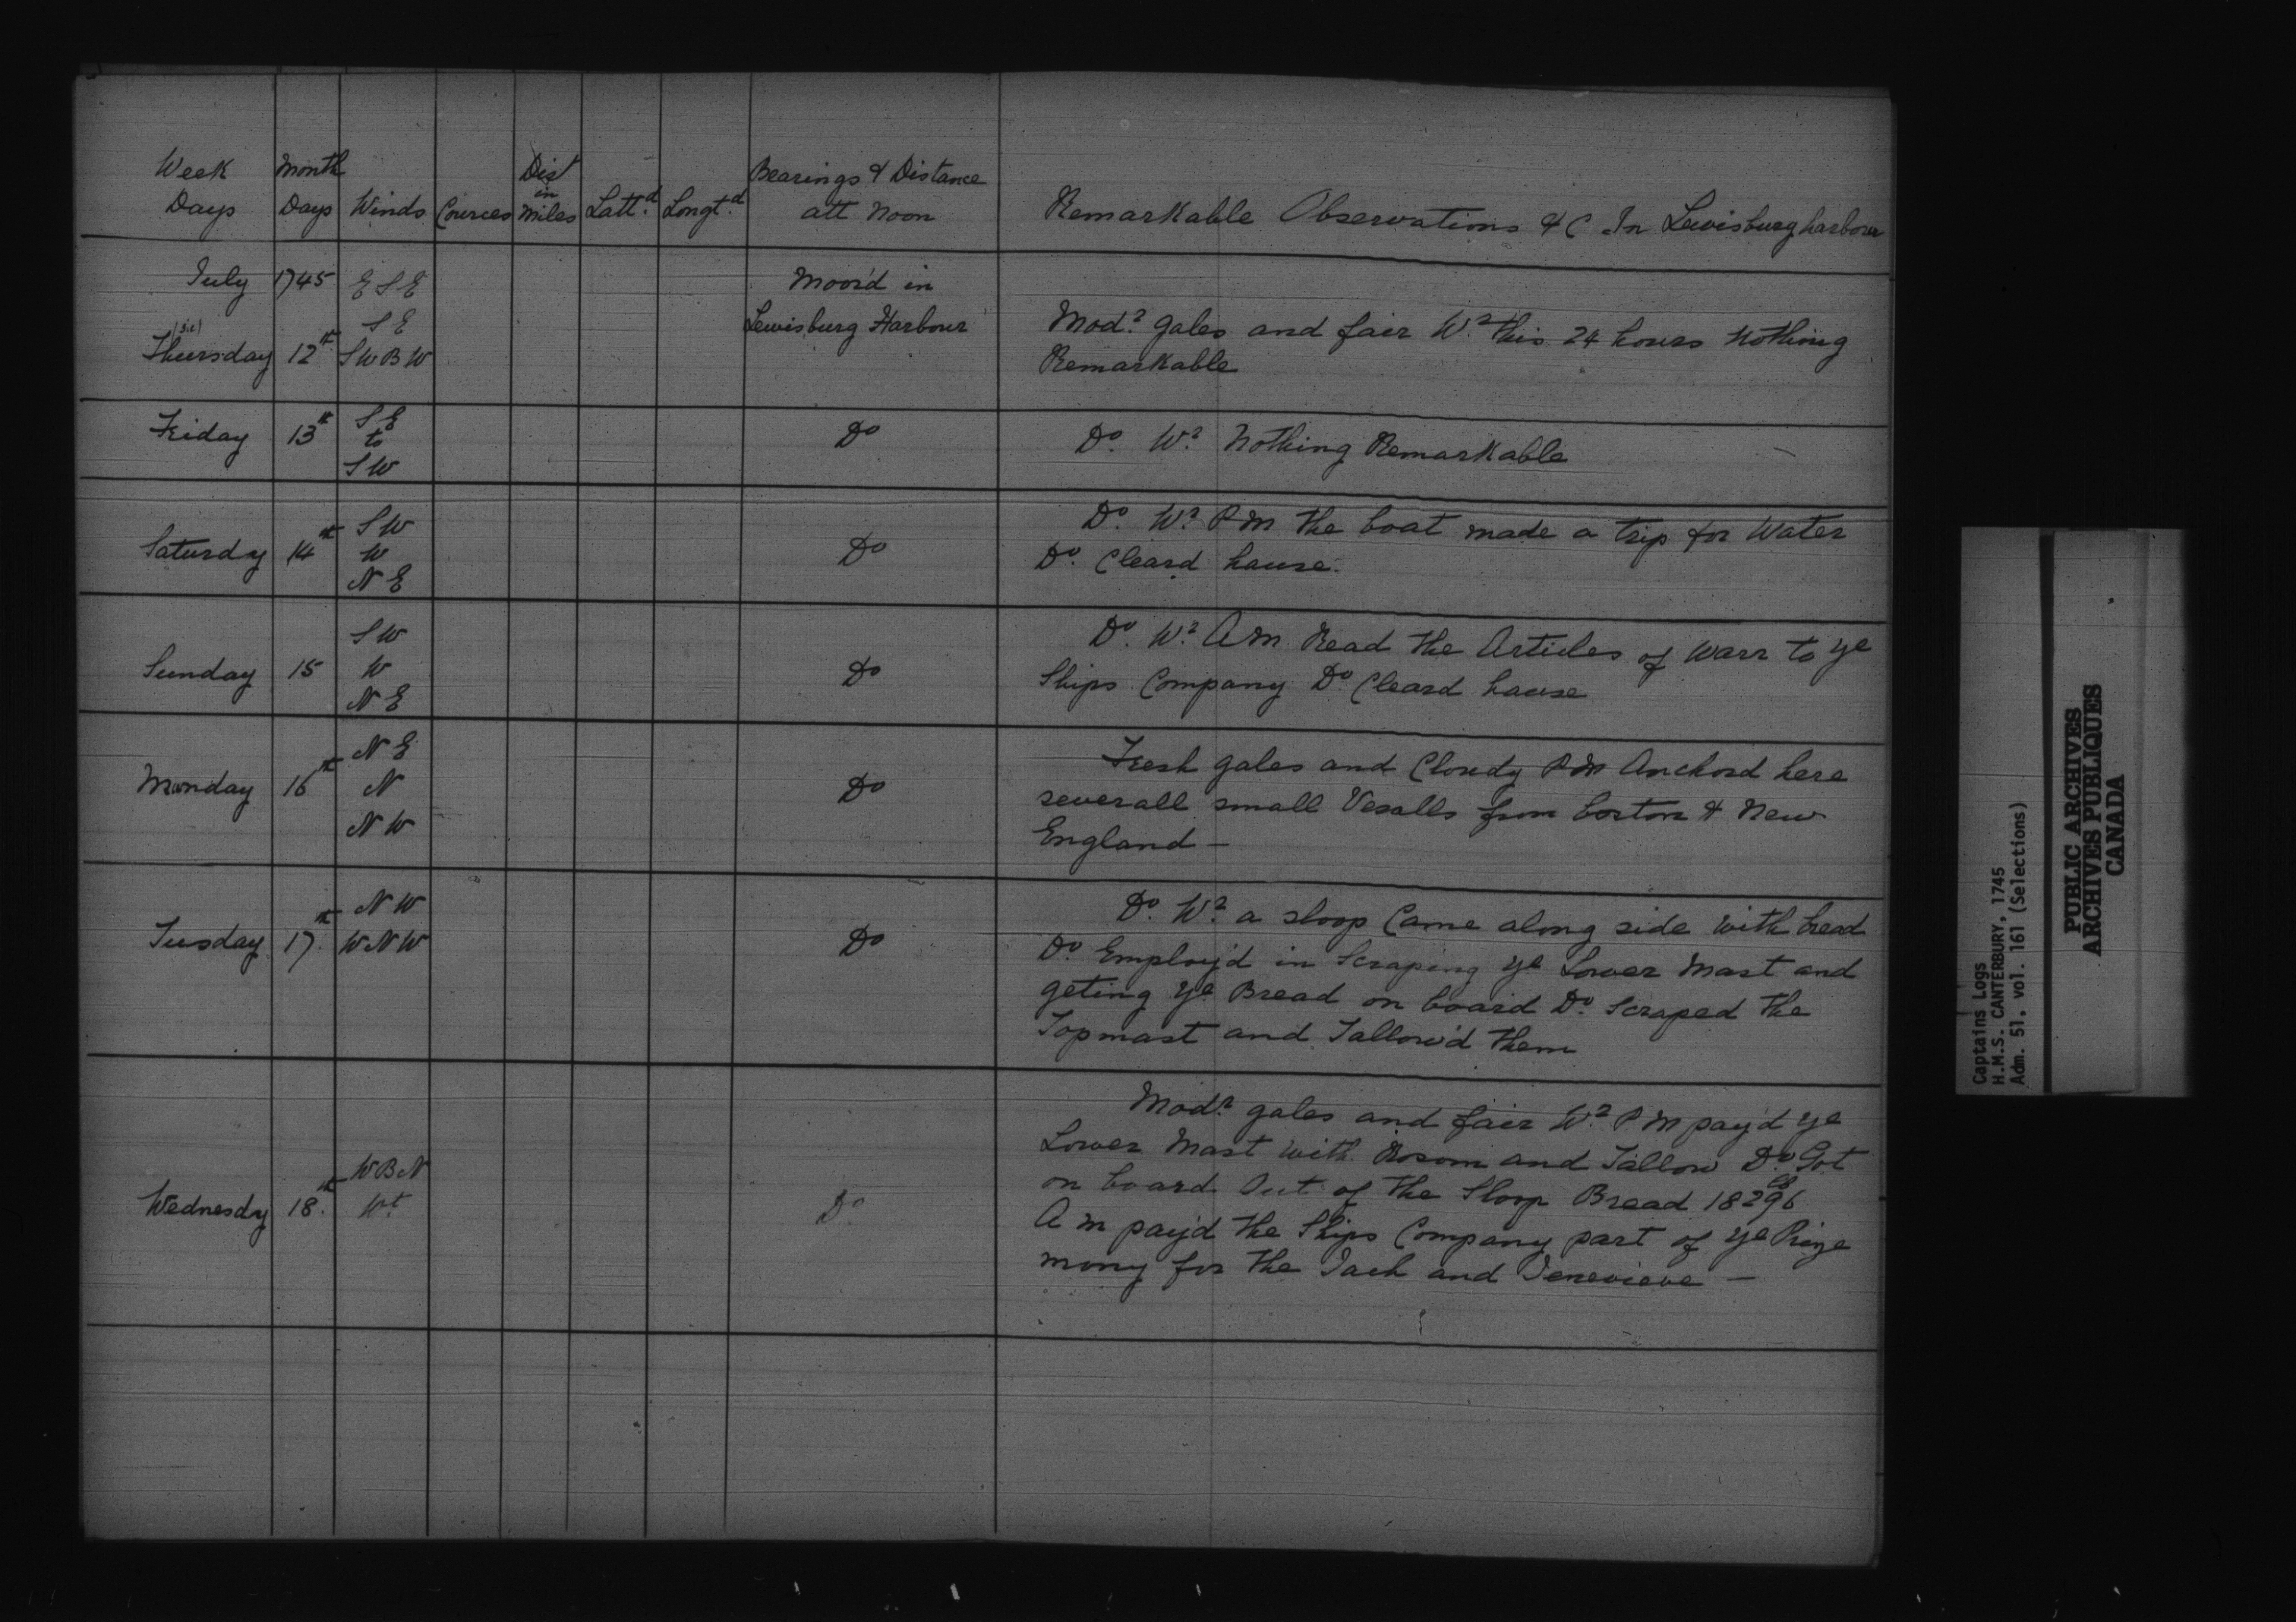 Week Days Month Days Winds Cources Dist in miles Latt.d Longt.d Bearings & Distance att Noon Remarkable Observations &C In Lewisburg harbour
July 1745 E S E Moor'd in
(sic) S E Lewisburg Harbour Mod.r gales and fair W.r this 24 hours Nothing
Thursday 12th S W B W Remarkable
Friday 13th S E to S W Do Do. W.r Nothing Remarkable
Saturdy 14th S W W N E Do Do. W.r P M the boat made a trip for Water
Do. Cleard hause.
Sunday 15 S W W N E Do Do. W.r A M Read the Articles of Warr to ye
Ships Company Do Cleard hause
Monday 16th N E N N W Do Fresh gales and Cloudy P M Anchord here
severall small Vesalls from boston & New
England —
Tusday 17th N W W N W Do Do. W.r a sloop Came along side with bread
Do Employ'd in Scraping ye Lower Mast and
geting ye Bread on board Do. Scraped the
Topmast and Tallow'd them
Wednesdy 18th W B N Wt. Do Mod.r gales and fair W.r P M pay'd ye
Lower Mast with Rosom and Tallow Do. Got
on board Out of the Sloop Bread 18296 lb
A M pay'd the Ships Company part of ye Prize
mony for the Jach and Jenevieve —
Captains Logs
H.M.S. CANTERBURY, 1745
Adm. 51, vol. 161 (Selections)
PUBLIC ARCHIVES
ARCHIVES PUBLIQUES
CANADA